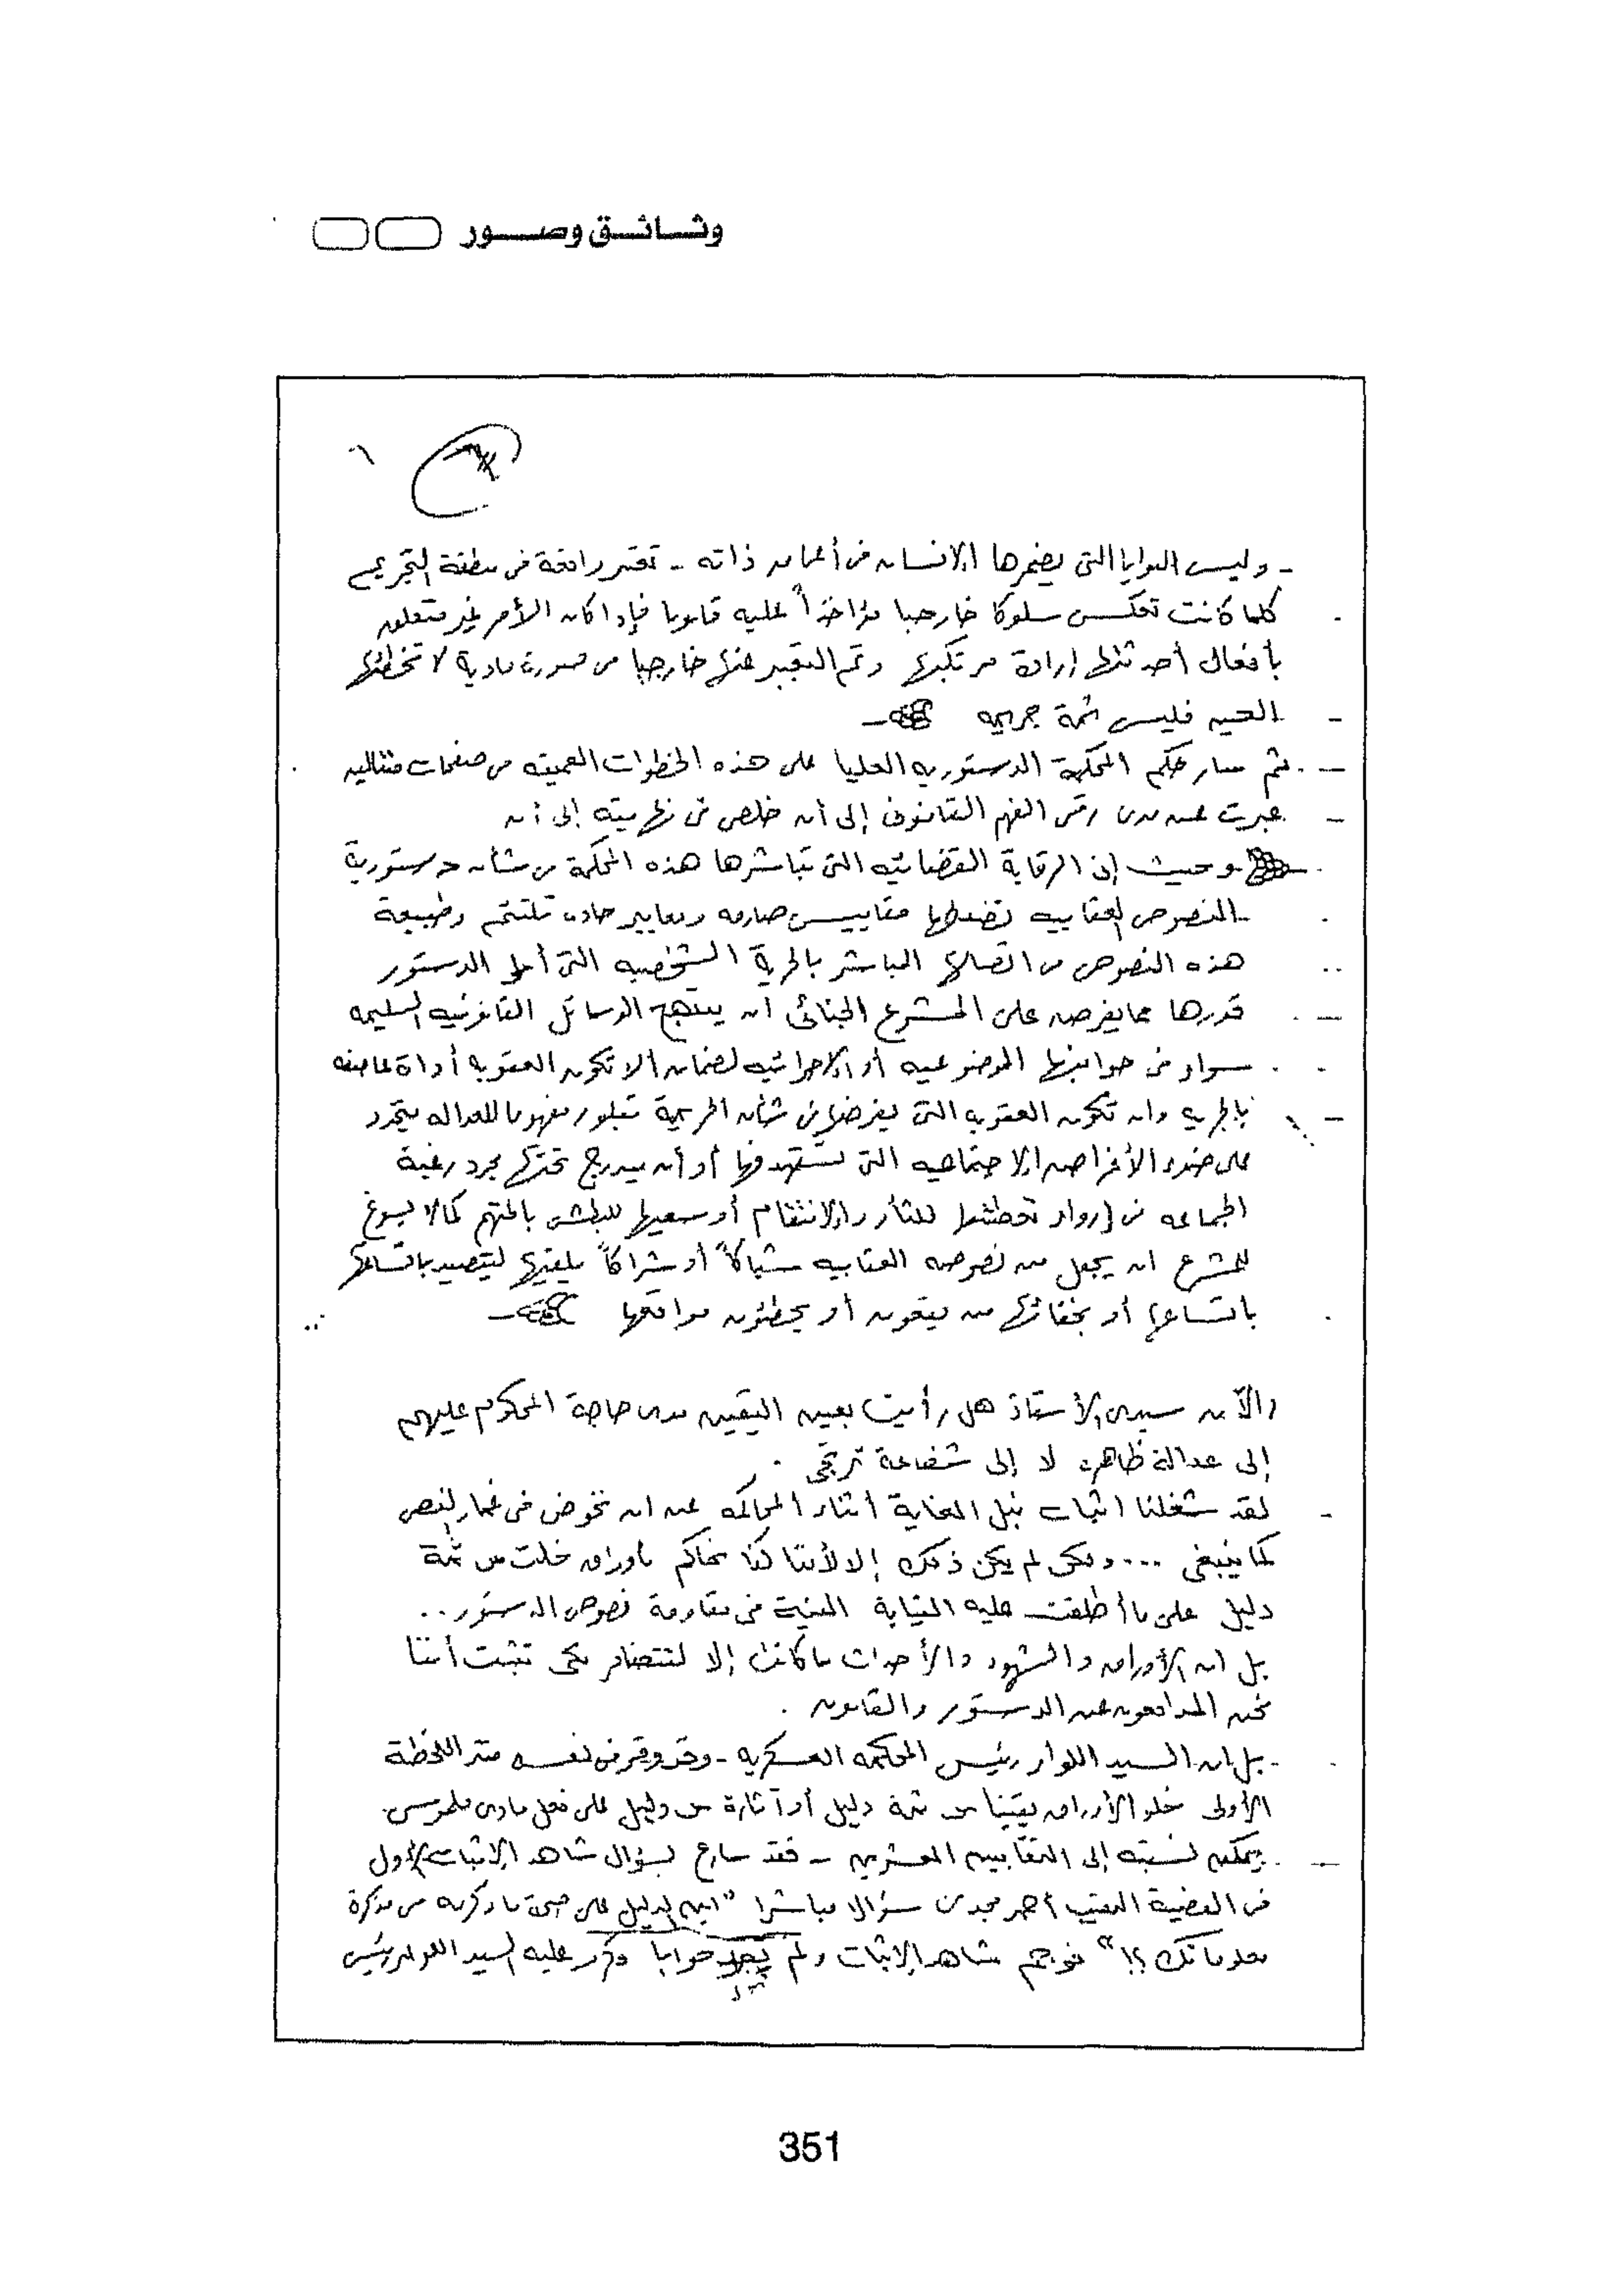 وثائق وصور
- وليس النوايا التى يضمرها الإنسان فى أعماق ذاته - تعتبر واقعة فى منطقة التجريم
كلما كانت تعكس سلوكا خارجيا مؤاخذاً عليه قانونا فإذا كان الأمر غير متعلق
بأفعال أحدثتها إرادة مرتكبها وتم التعبير عنها خارجيا فى صورة مادية لا تخطئها
العين فليس ثمة جريمه
ثم سار حكم المحكمة الدستوريه العليا على هذه الخطوات العميقه فى صفحات متتاليه
عبرت عن مدى رقى الفهم القانونى إلى أن خلص فى نهايته إلى أن
وحيث إن الرقابة القضائيه التى تباشرها هذه المحكمة فى شأن دستورية
النصوص العقابيه تضبطها مقاييس صارمه ومعايير حاده تلتئم وطبيعة
هذه النصوص فى اتصالها المباشر بالحرية الشخصيه التى أعلى الدستور
قدرها مما يفرض على المشرع الجنائى ان ينتهج الوسائل القانونيه السليمه
سواء فى جوانبها الموضوعيه أو الاجرائيه لضمان الا تكون العقوبه أداة عاصفه
بالحريه وان تكون العقوبه التى يفرضها فى شأن الجريمة تبلور مفهوما للعداله يتحدد
على ضوء الأغراض الاجتماعيه التى تستهدفها أو أن يندرج تحتها مجرد رغبة
الجماعه فى إرواء تعطشها للثأر والانتقام أو سعيها للبطش بالمتهم كما لا يسوغ
للمشرع ان يجعل من نصوصه العقابيه شباكاً أو شراكاً يلقيها ليتصيد باتساعها
باتساعها أو بخفائها من يقعون أو يخطئون مواقعها
والآن سيدى الأستاذ هل رأيت بعين اليقين مدى حاجة المحكوم عليهم
إلى عدالة ظاهره لا إلى شفاعة ترتجى .
لقد شغلنا اثبات نبل الغاية أثناء المحاكمه عن ان نخوض فى غمار النص
كما ينبغى .... ولكن لم يكن ذلك إلا لأننا كنا نحاكم بأوراق خلت من ثمة
دليل على ما أطلقت عليه النيابة الفنية فى مقاومة نصوص الدستور ..
بل ان الأوراق والشهود والأحداث ما كانت إلا لتتضافر لكى تثبت أننا
نحن المدافعون عن الدستور والقانون .
- بل ان السيد اللواء رئيس المحكمه العسكريه - وقد وقر فى نفسه منذ اللحظة
الأولى خلو الأوراق يقينا من ثمة دليل أو آثارة من دليل على فعل مادى ملموس
يمكن نسبته إلى النقابيين العشرين - فقد سارع بسؤال شاهد الإثبات الأول
فى القضية النقيب أحمد سؤالا مباشرا "اين الدليل على صحة ما ذكرته فى مذكرة
معلوماتك ؟!" فوجم شاهد الإثبات ولم يجد جوابا وكرر عليه السيد اللواء رئيس
351